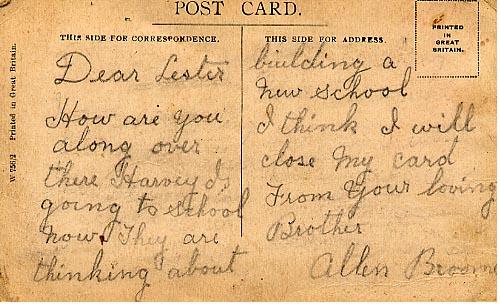 POST CARD.
THIS SIDE FOR CORRESPONDENCE.
THIS SIDE FOR ADDRESS.
PRINTED
IN
GREAT
BRITAIN.
Printed in Great Britain.
Dear Lester
How are you
along over
there Harvey is
going to school
now. They are
thinking about
biulding a
new school
I think I will
close My card
From Your loving
Brother
Allen